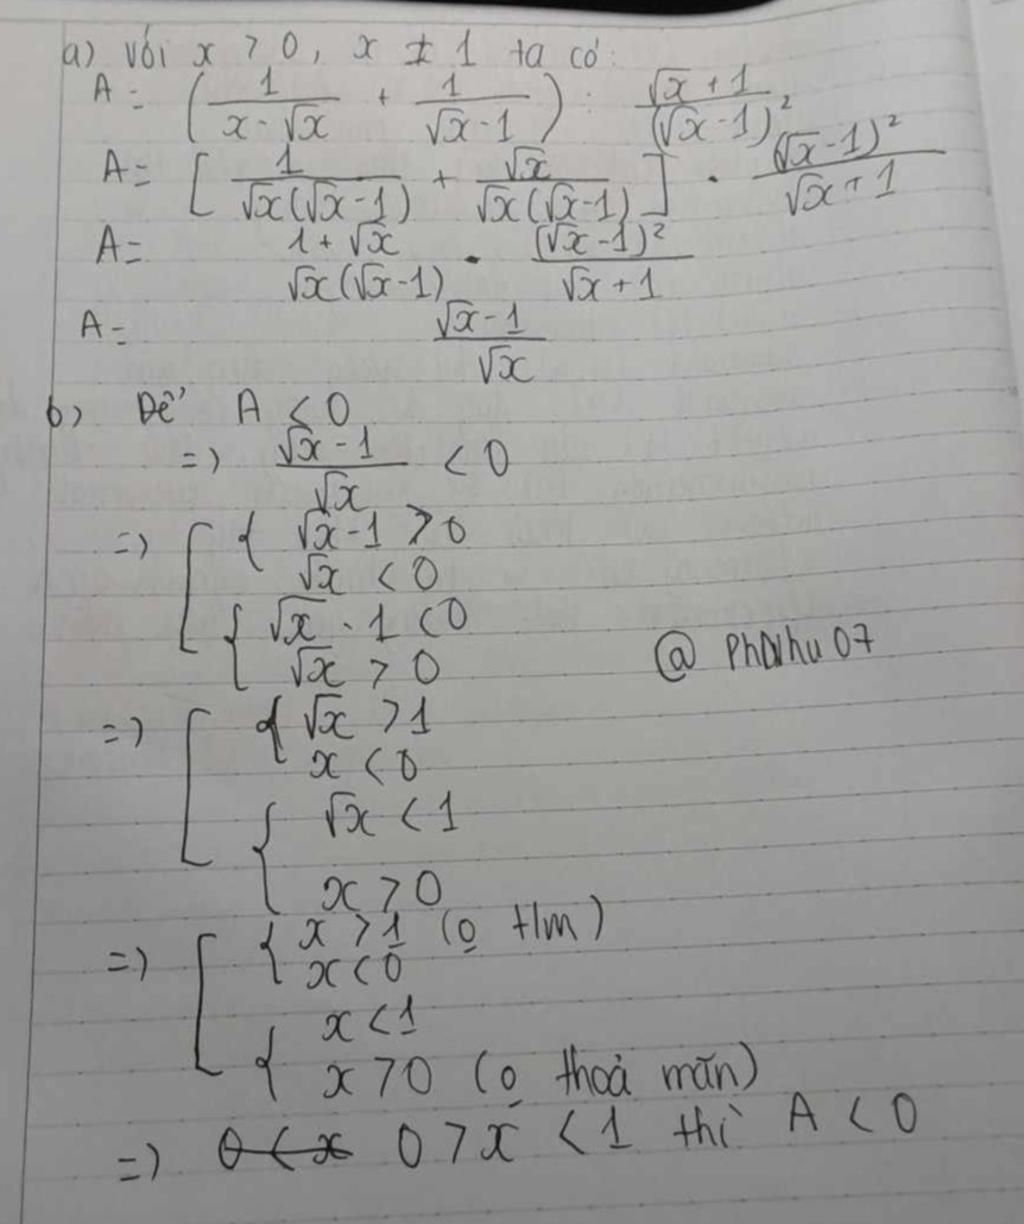 a) Với x > 0, x ≠ 1 ta có:
A = (1/(x - √x) + 1/(√x - 1)) : (√x + 1)/(√x - 1)²
A = [1/(√x(√x - 1)) + √x/(√x(√x - 1))] · (√x - 1)²/(√x + 1)
A = (1 + √x)/(√x(√x - 1)) · (√x - 1)²/(√x + 1)
A = (√x - 1)/√x
b) Để A < 0
=> (√x - 1)/√x < 0
=> [ { √x - 1 > 0
√x < 0
{ √x - 1 < 0
√x > 0
@ Phanhu07
=> [ { √x > 1
x < 0
{ √x < 1
x > 0
=> [ { x > 1 (o t/m)
x < 0
{ x < 1
x > 0 (o thoả mãn)
=> 0 < x 0 > x < 1 thì A < 0